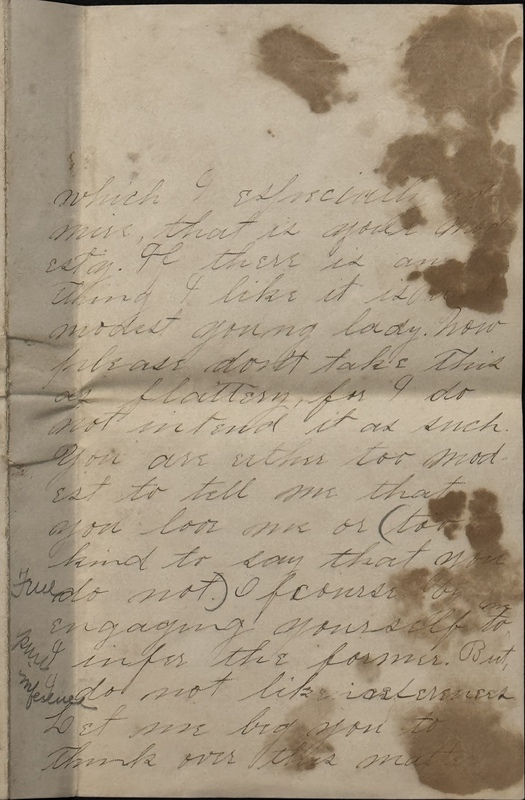 which I especially ad-
mire, that is your mod-
esty. If there is any
thing I like it is a
modest young lady. Now
please don't take this
as flattery, for I do
not intend it as such.
You are either too mod-
est to tell me that
you love me or (too
kind to say that you
True do not.) Of course by
engaging yourself to
pure I infer the former. But,
inference I do not like inferences
Let me beg you to
think over this matter